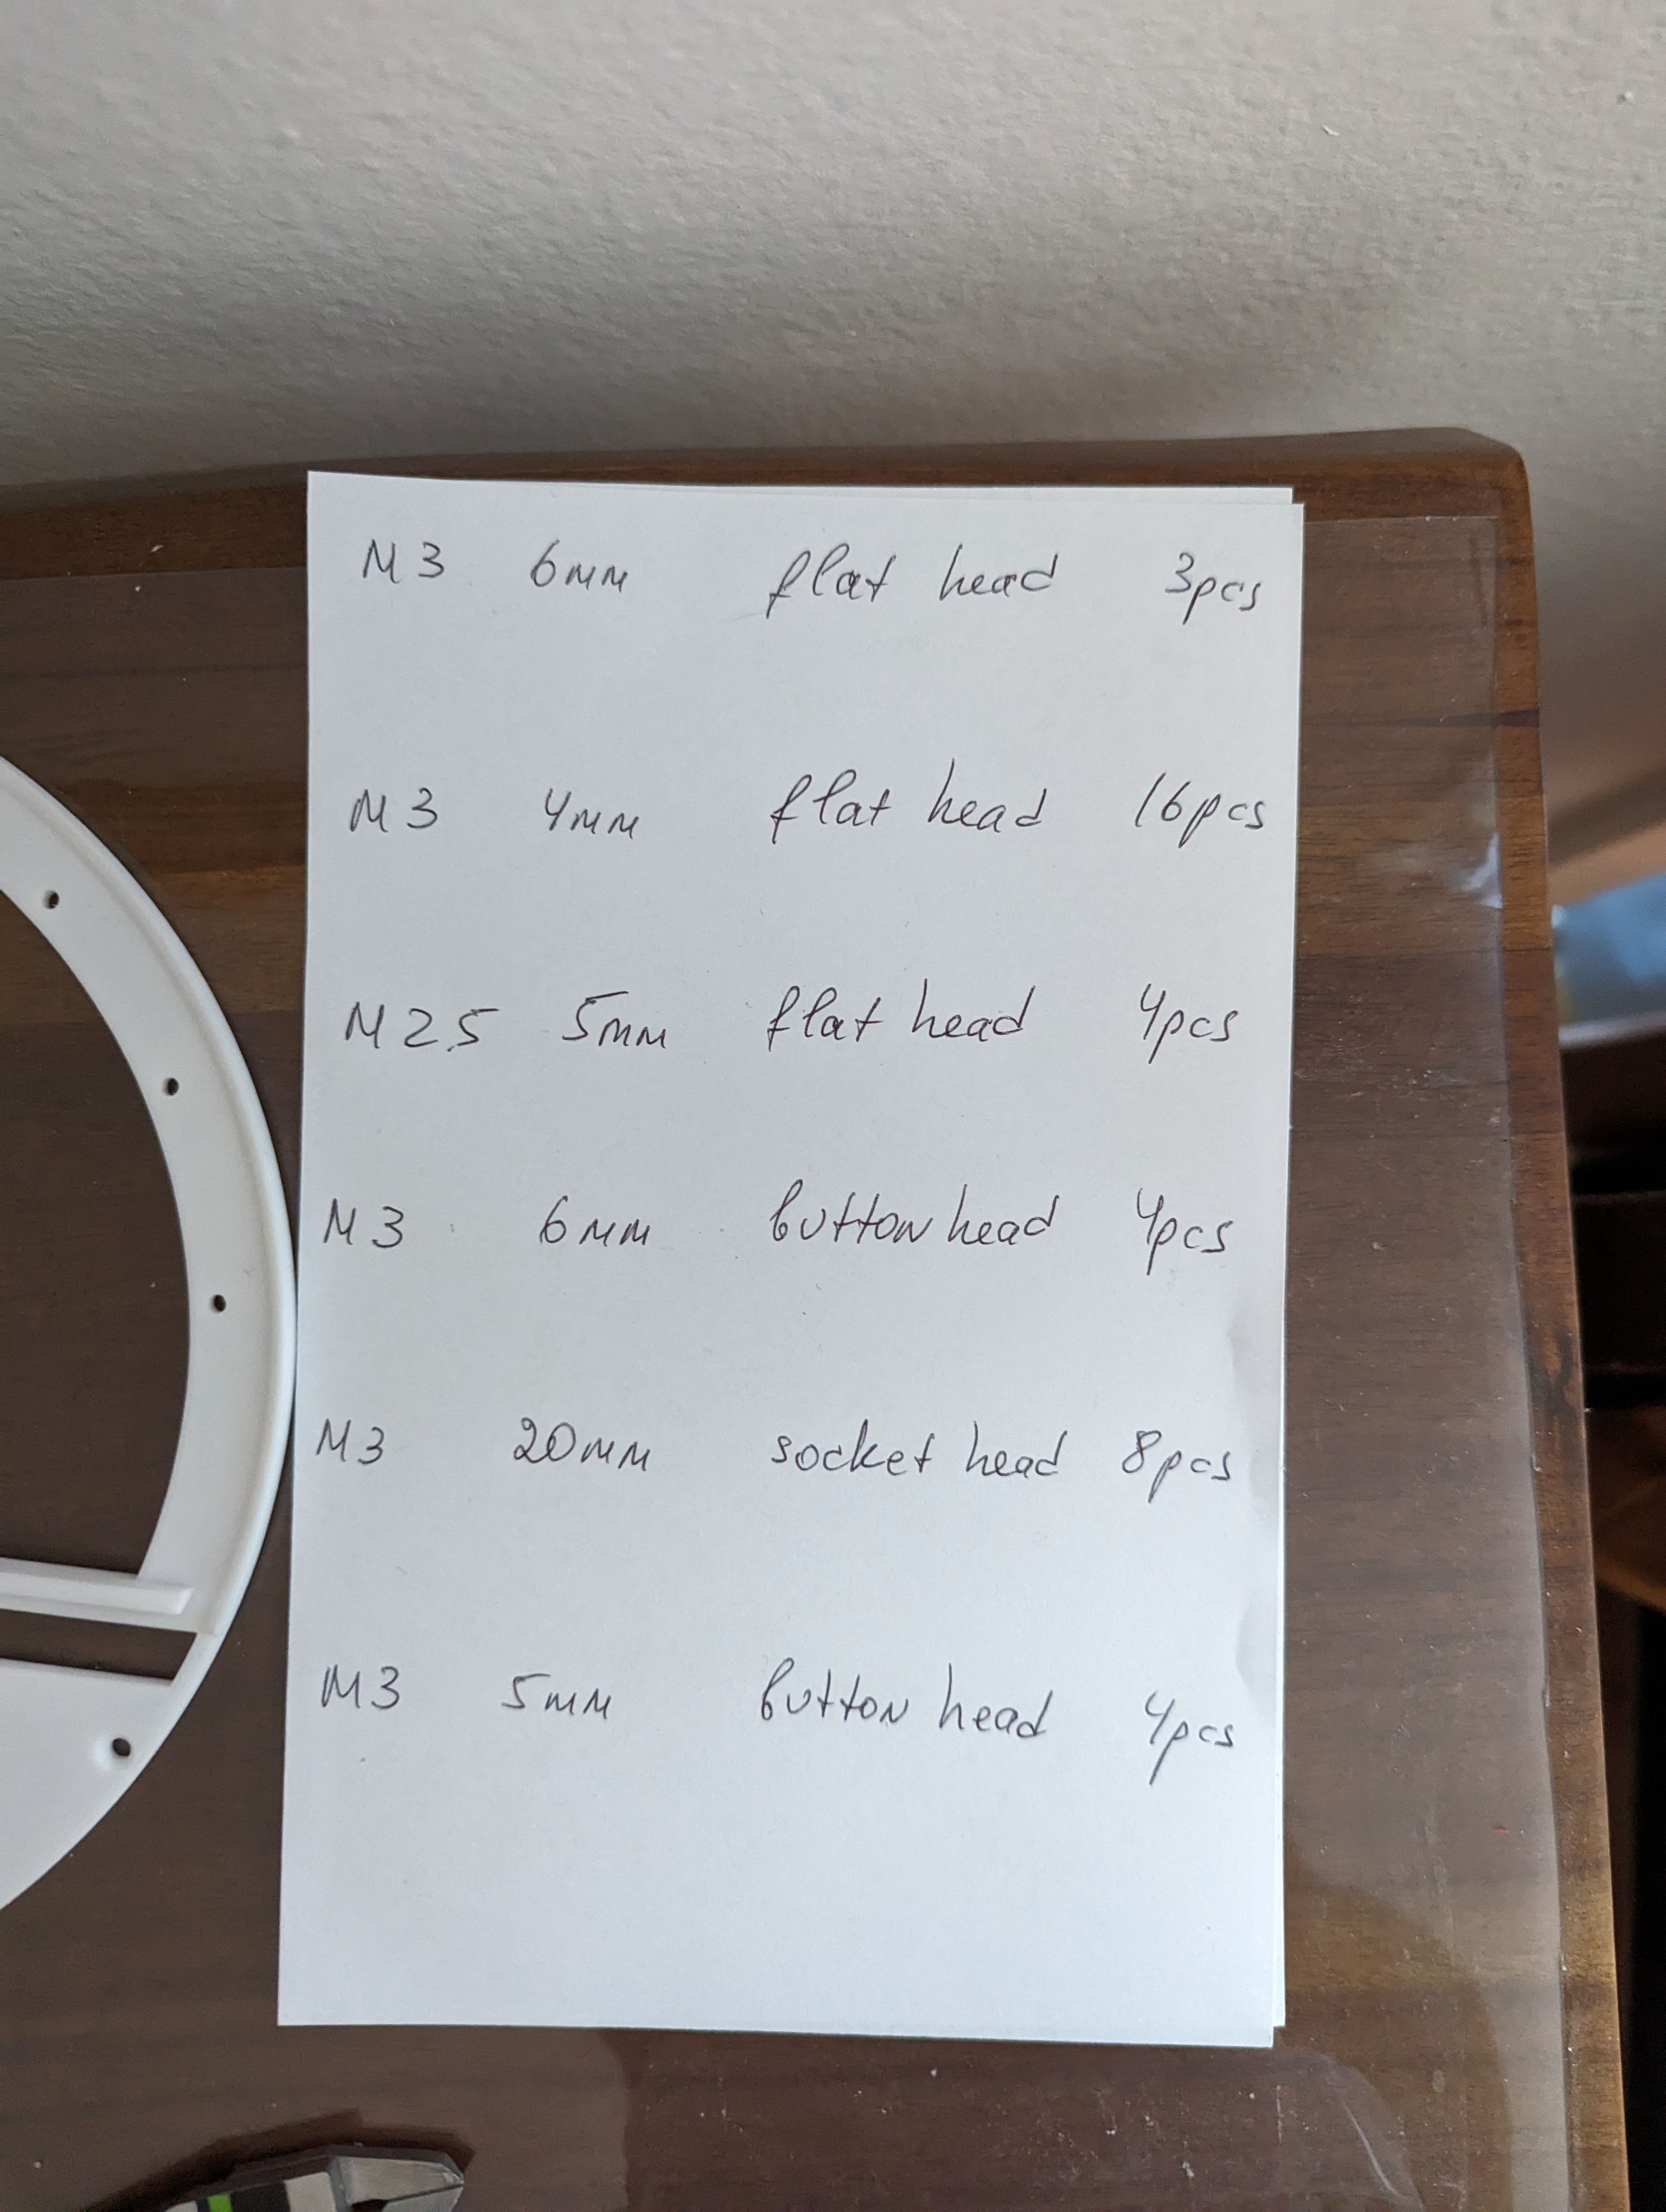 M3 6mm flat head 3pcs
M3 4mm flat head 16pcs
M2.5 5mm flat head 4pcs
M3 6mm button head 4pcs
M3 20mm socket head 8pcs
M3 5mm button head 4pcs